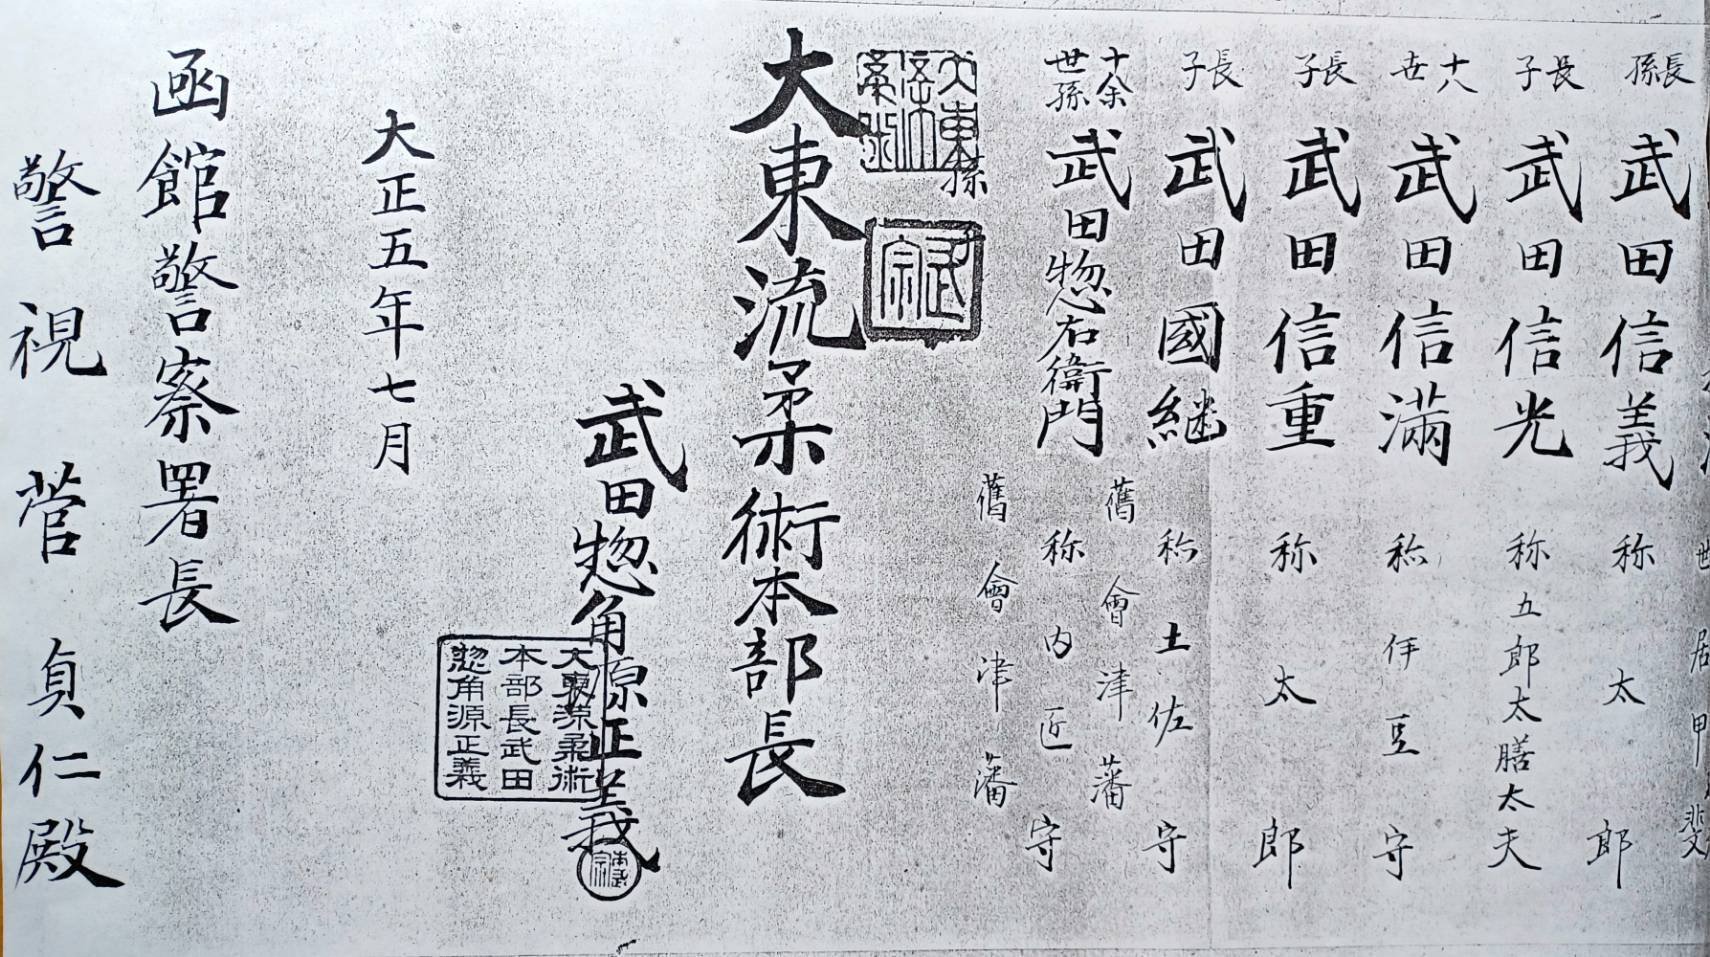 世居甲斐
長孫 武田信義 称太郎
長子 武田信光 称五郎太膳太夫
十八世 武田信満 称伊豆守
長子 武田信重 称太郎
長子 武田國継 称土佐守
舊會津藩
十余世孫 武田惣右衛門 称内匠守
舊會津藩
孫
大東流柔術本部長
武田惣角源正義
大東流柔術
本部長武田
惣角源正義
大正五年七月
函館警察署長
警視菅貞仁殿